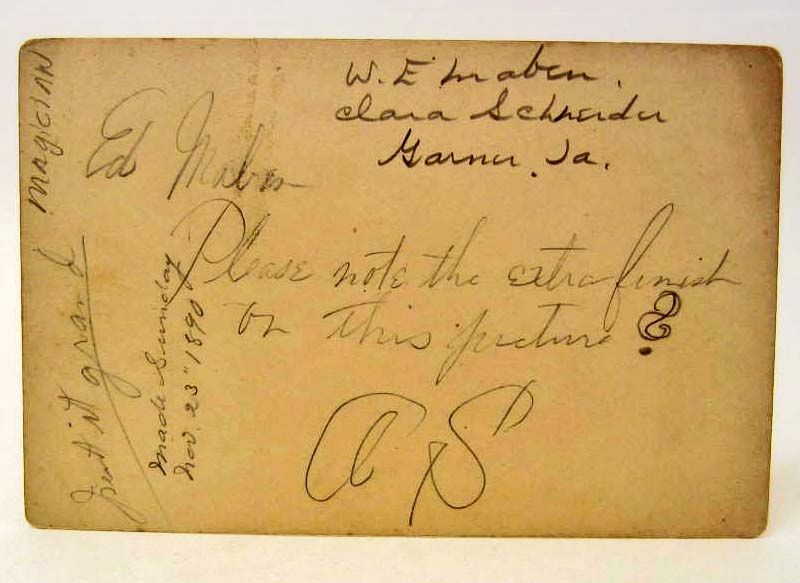 MAGICIAN
W. E Maben.
Clara Schneider
Garner, Ia.
Ed Maben
Please note the extra finish
on this picture?
Made Sunday
Nov. 23" 1890
it grand
A S